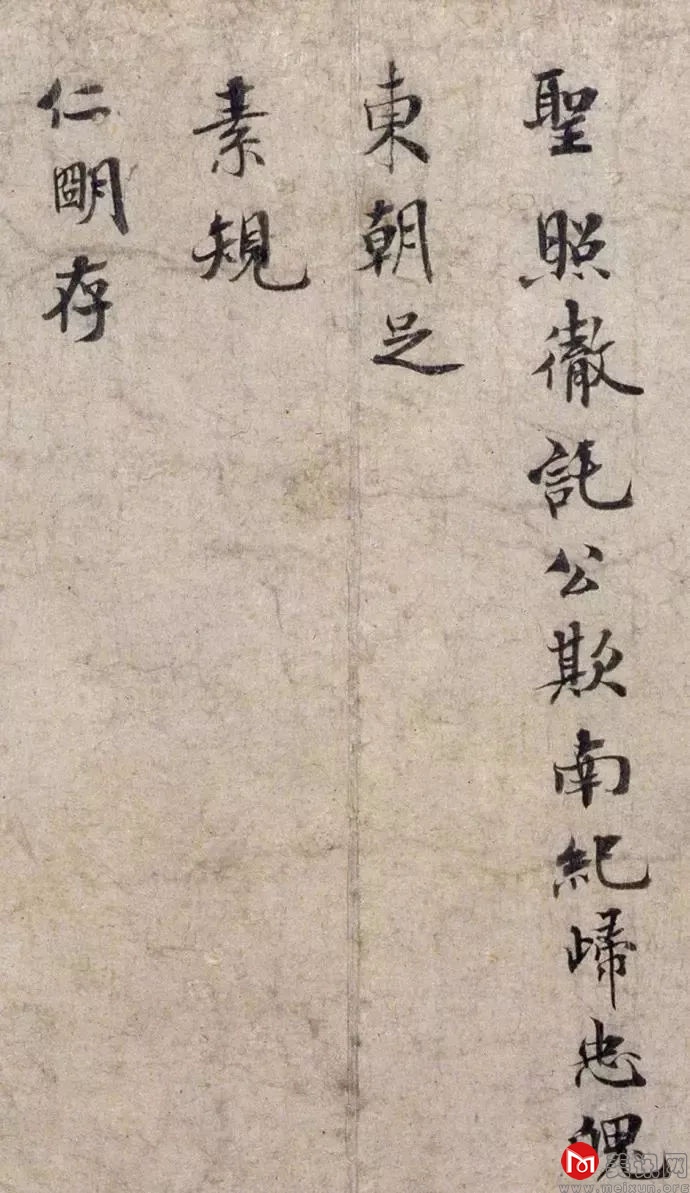 聖照徹託公欺南紀歸忠魄
東朝足
素規
仁明存
美讯网
www.meixun.org